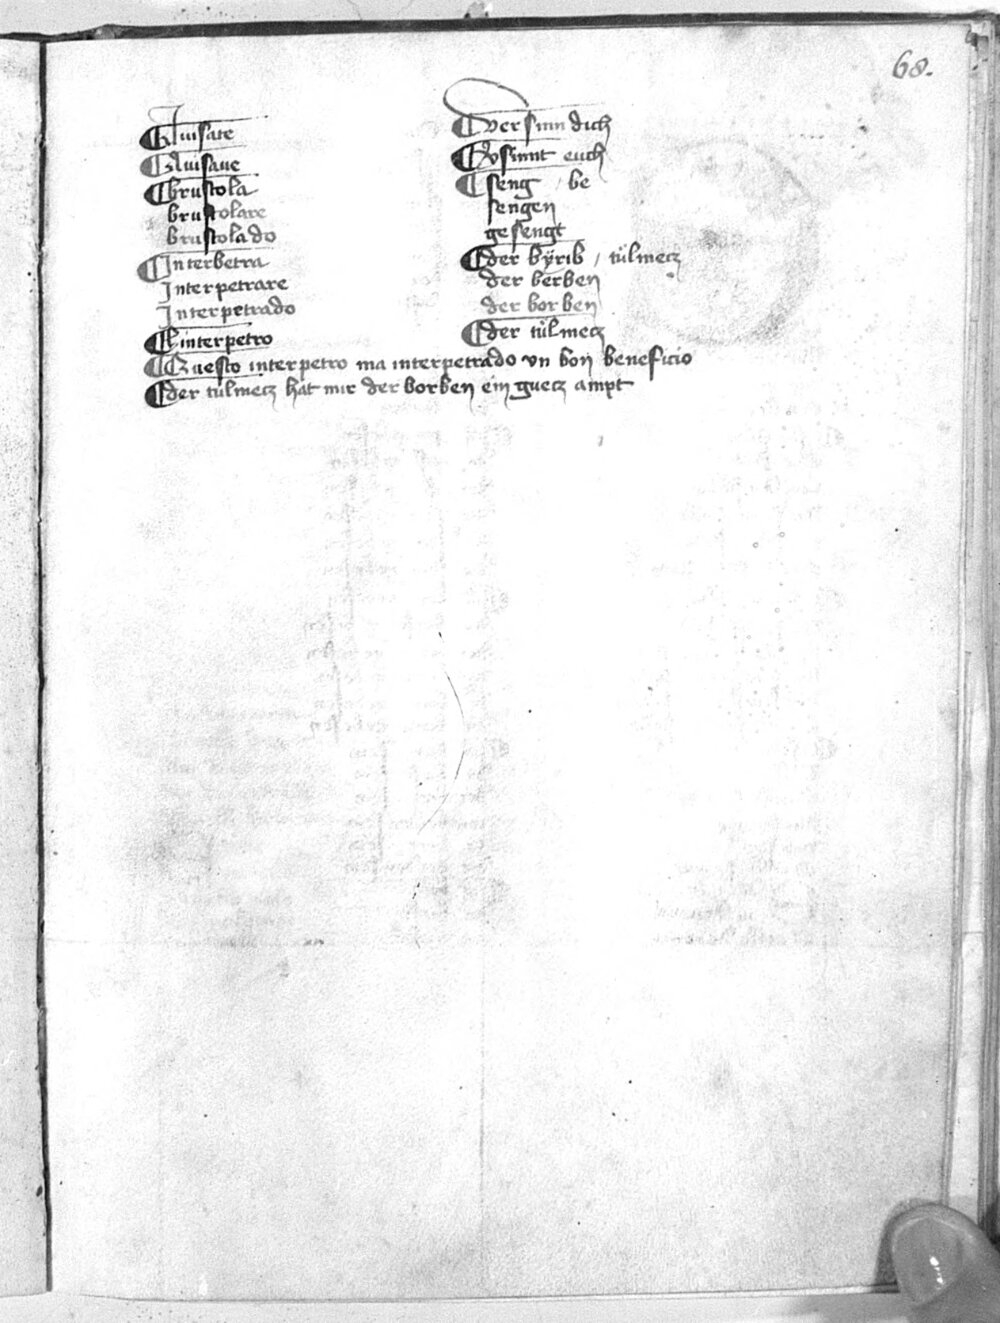 68.
Auisate
Auisaue
brustola
brustolare
brustolado
Interbetra
Interpetrare
Interpetrado
El interpetro
Questo interpetro ma interpetrado vn bon beneficio
der tulmecz hat mir der borben ein guecz ampt
Versinn dich
Vsinnt euch
seng / be
sengen
gesengt
der bÿrib / tůlmecz
der berben
der borben
der tůlmecz